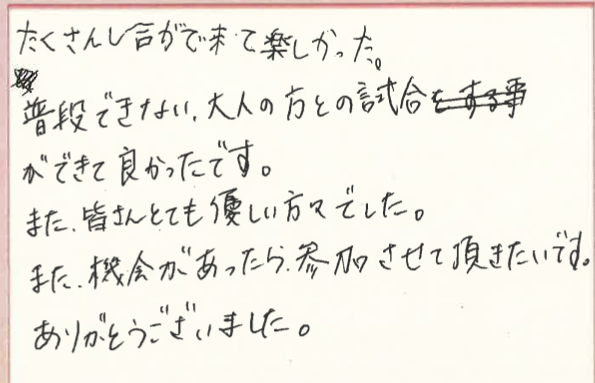 たくさんし合ができて楽しかった。
普段できない、大人の方との試合をする事
ができて良かったです。
また、皆さんとても優しい方々でした。
また、機会があったら、参加させて頂きたいです。
ありがとうございました。